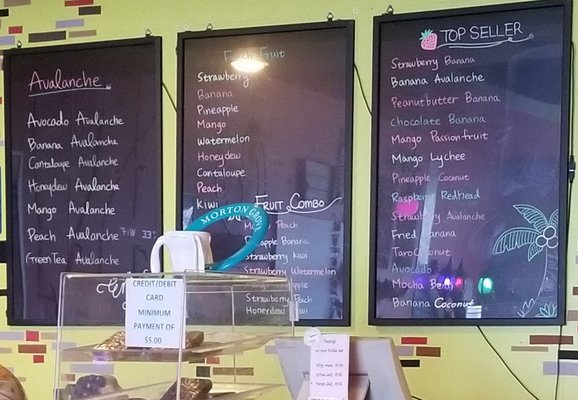 Avalanche
Avocado Avalanche
Banana Avalanche
Cantaloupe Avalanche
Honeydew Avalanche
Mango Avalanche
Peach Avalanche
Green Tea Avalanche
Fruit
Strawberry
Banana
Pineapple
Mango
Watermelon
Honeydew
Cantaloupe
Peach
Kiwi
Fruit Combo
Peach
Pineapple Banana
Strawberry Kiwi
Strawberry Watermelon
Strawberry Peach
Honeydew
TOP SELLER
Strawberry Banana
Banana Avalanche
Peanutbutter Banana
Chocolate Banana
Mango Passionfruit
Mango Lychee
Pineapple Coconut
Raspberry Redhead
Strawberry Avalanche
Fried Banana
Taro Coconut
Avocado
Mocha Bean
Banana Coconut
MORTON GROVE
CREDIT/DEBIT
CARD
MINIMUM
PAYMENT OF
$5.00